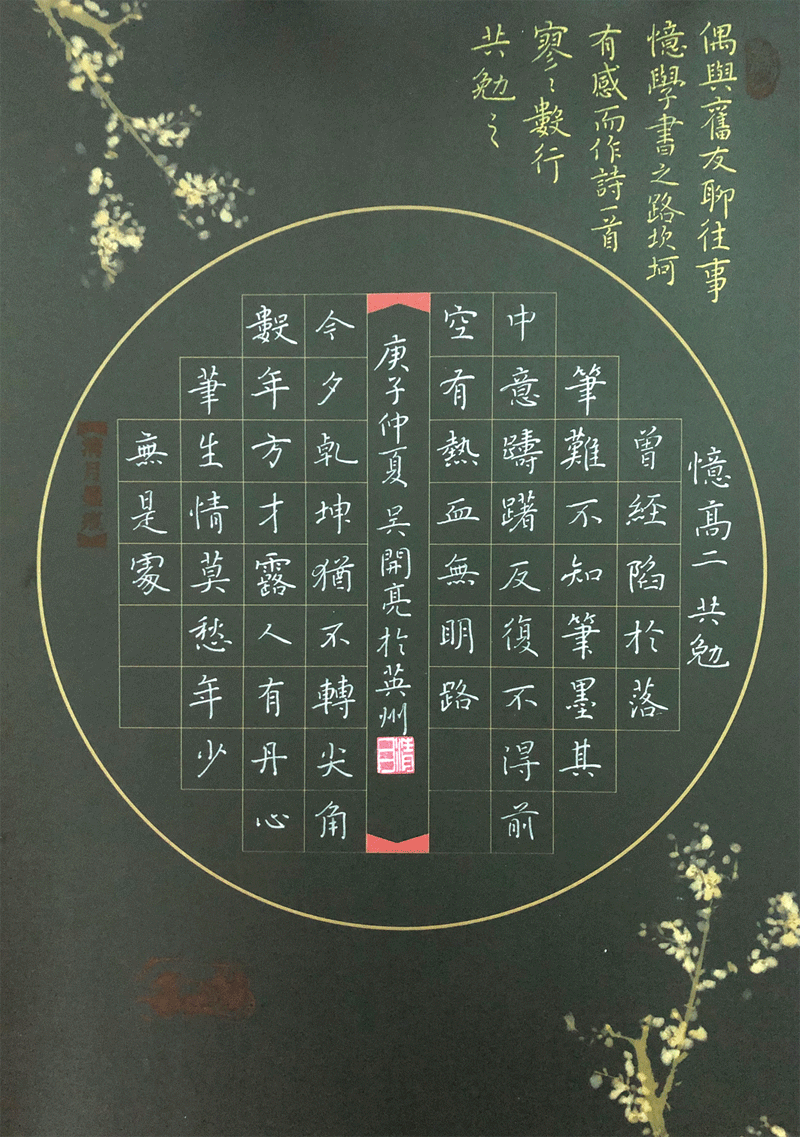 偶與舊友聊往事
憶學書之路坎坷
有感而作詩一首
寥〻數行
共勉之
憶高二 共勉
曾經陷於落
筆難不知筆墨其
中意躊躇反復不得前
空有熱血無明路
庚子仲夏 吴開亮於英州
今夕乾坤猶不轉尖角
數年方才露人有丹心
筆生情莫愁年少
無是處